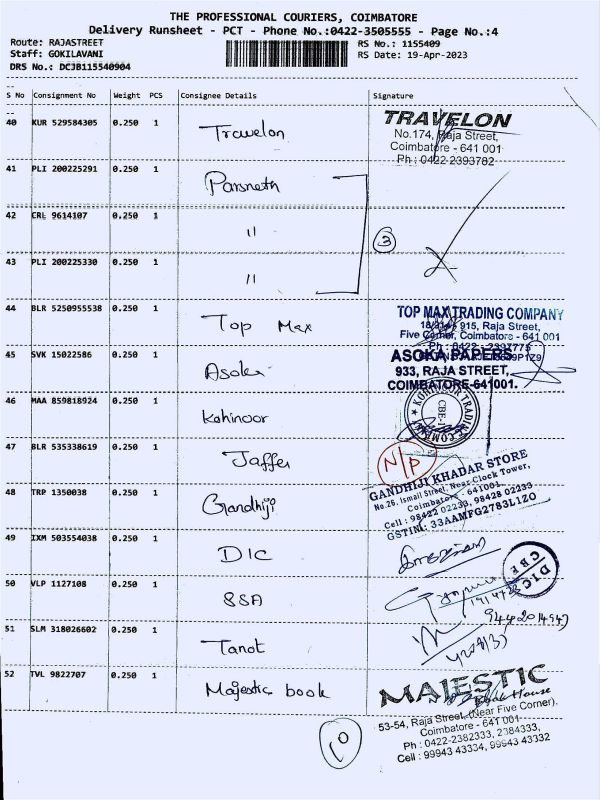 THE PROFESSIONAL COURIERS, COIMBATORE
Delivery Runsheet - PCT - Phone No.:0422-3505555 - Page No.:4
Route: RAJASTREET
Staff: GOKILAVANI
DRS No.: DCJB115540904
RS No.: 1155409
RS Date: 19-Apr-2023
S No Consignment No Weight PCS Consignee Details Signature
40 KUR 529584305 0.250 1 Travelon
TRAVELON
No.174, Raja Street,
Coimbatore - 641 001
Ph : 0422 2393782
41 PLI 200225291 0.250 1 Parsneth
42 CRL 9614107 0.250 1 "
3
43 PLI 200225330 0.250 1 "
44 BLR 5250955538 0.250 1 Top Max
TOP MAX TRADING COMPANY
915, Raja Street,
Five Corner, Coimbatore - 641 001
45 SVK 15022586 0.250 1 Asoka
ASOKA PAPERS
933, RAJA STREET,
COIMBATORE-641001.
46 MAA 859818924 0.250 1 Kohinoor
KOHINOOR TRADING COMPANY
47 BLR 535338619 0.250 1 Jaffer
N/P
48 TRP 1350038 0.250 1 Gandhiji
GANDHIJI KHADAR STORE
No.26, Ismail Street, Near Clock Tower,
Coimbatore - 641001
Cell : 98422 02233, 98428 02233
GSTIN: 33AAMFG2783L1ZO
49 IXM 503554038 0.250 1 DIC
DIC
CBE
50 VLP 1127108 0.250 1 SSA
51 SLM 318026602 0.250 1 Tanot
52 TVL 9822707 0.250 1 Majestic book
MAJESTIC
Book House
53-54, Raja Street, (Near Five Corner),
Coimbatore - 641 001
Ph : 0422-2382333, 2384333,
Cell : 99943 43334, 99943 43332
10